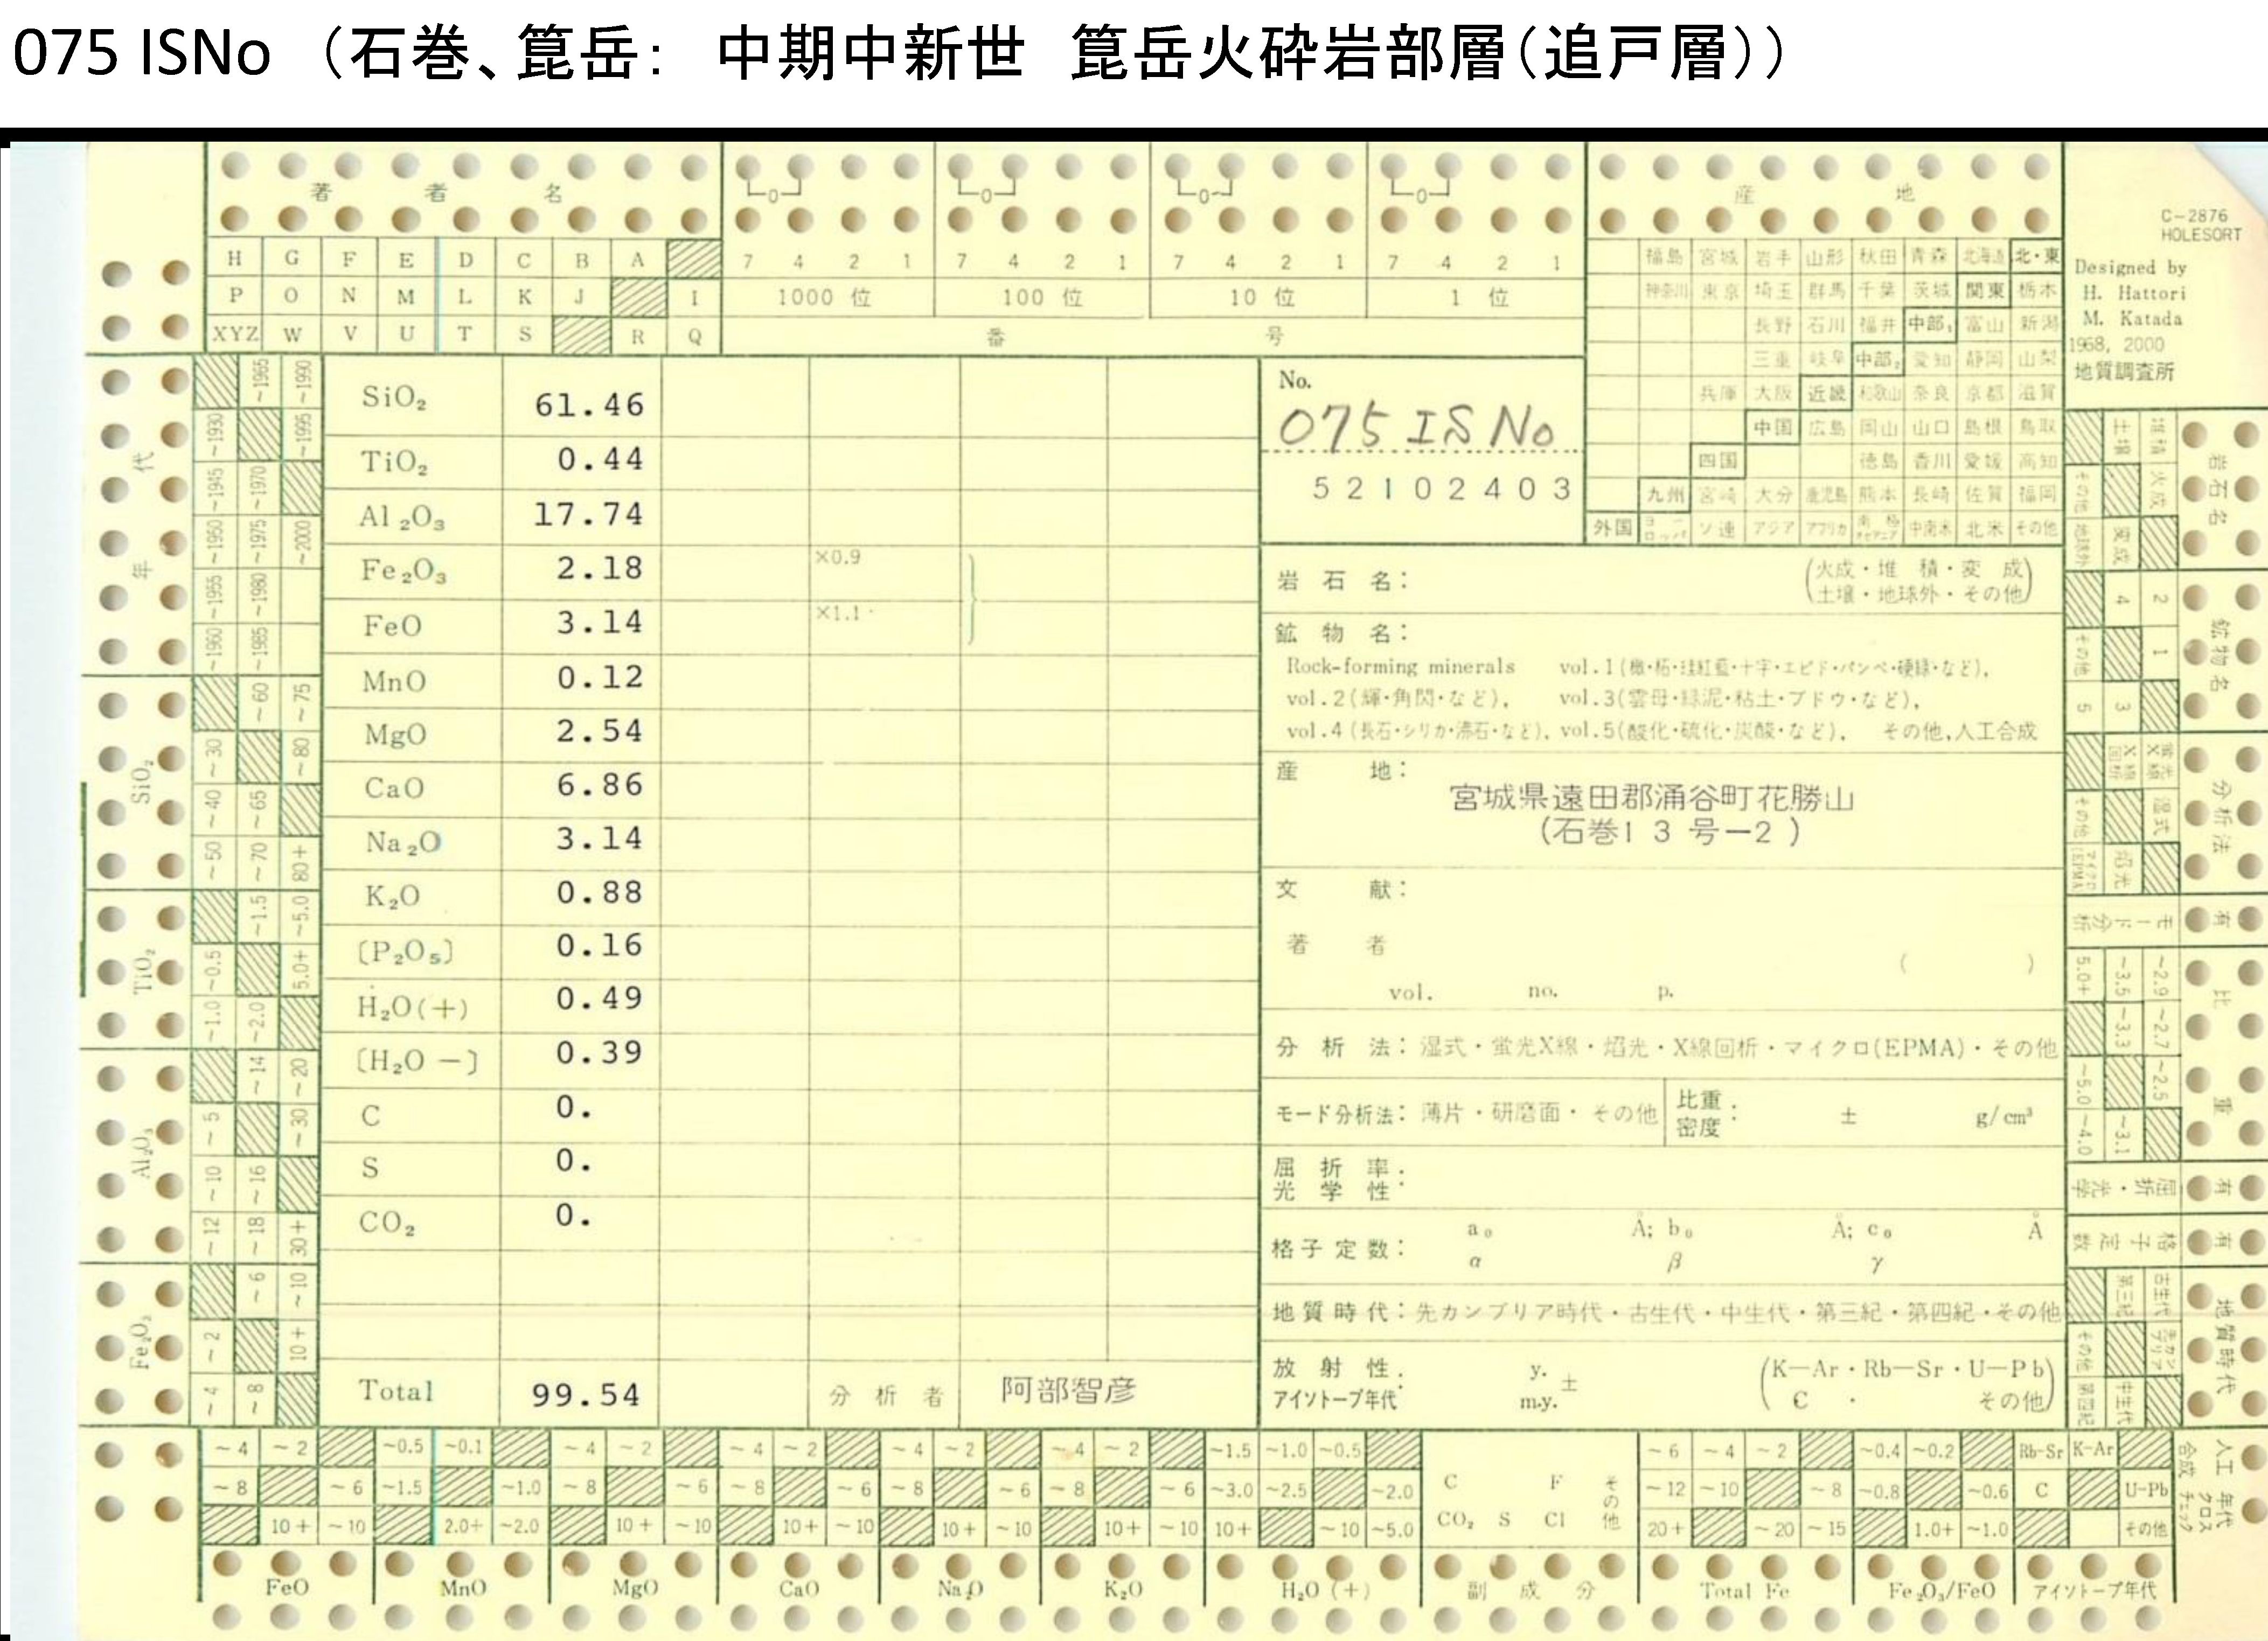 075 ISNo （石巻、箟岳： 中期中新世 箟岳火砕岩部層（追戸層））
著 者 名
産 地
C-2876
HOLESORT
Designed by
H. Hattori
M. Katada
1968, 2000
地質調査所
H G F E D C B A
P O N M L K J I
XYZ W V U T S R Q
7 4 2 1 7 4 2 1 7 4 2 1 7 4 2 1
1000 位 100 位 10 位 1 位
番 号
福島 宮城 岩手 山形 秋田 青森 北海道 北・東
神奈川 東京 埼玉 群馬 千葉 茨城 関東 栃木
長野 石川 福井 中部₁ 富山 新潟
三重 岐阜 中部₂ 愛知 静岡 山梨
兵庫 大阪 近畿 和歌山 奈良 京都 滋賀
中国 広島 岡山 山口 島根 鳥取
四国 徳島 香川 愛媛 高知
九州 宮崎 大分 鹿児島 熊本 長崎 佐賀 福岡
外国 ヨーロッパ ソ連 アジア アフリカ 中南米 北米 その他
SiO₂ 61.46
TiO₂ 0.44
Al₂O₃ 17.74
Fe₂O₃ 2.18 ×0.9
FeO 3.14 ×1.1
MnO 0.12
MgO 2.54
CaO 6.86
Na₂O 3.14
K₂O 0.88
〔P₂O₅〕 0.16
H₂O(+) 0.49
〔H₂O −〕 0.39
C 0.
S 0.
CO₂ 0.
Total 99.54 分 析 者 阿部智彦
No.
075 IS No
52102403
岩 石 名： (火成・堆 積・変 成
土壌・地球外・その他)
鉱 物 名：
Rock-forming minerals vol.1(橄・柘・珪紅藍・十字・エピド・パンペ・硬緑・など),
vol.2(輝・角閃・など), vol.3(雲母・緑泥・粘土・ブドウ・など),
vol.4(長石・シリカ・沸石・など), vol.5(酸化・硫化・炭酸・など), その他,人工合成
産 地：
宮城県遠田郡涌谷町花勝山
(石巻13号−2)
文 献：
著 者 ( )
vol. no. p.
分 析 法：湿式・蛍光X線・焰光・X線回析・マイクロ(EPMA)・その他
モード分析法：薄片・研磨面・その他 比重密度： ± g/cm³
屈 折 率
光 学 性：
格子定数： a₀ Å; b₀ Å; c₀ Å
α β γ
地質時代：先カンブリア時代・古生代・中生代・第三紀・第四紀・その他
放 射 性 y. ± (K−Ar・Rb−Sr・U−Pb
アイソトープ年代： m.y. C ・ その他)
年 代
~1965 ~1990
~1930 ~1995
~1945 ~1970
~1950 ~1975 ~2000
~1955 ~1980
~1960 ~1985
SiO₂
~60 ~75
~30 ~80
~40 ~65
~50 ~70 80+
TiO₂
~1.5 ~5.0
~0.5 5.0+
~1.0 ~2.0
Al₂O₃
~14 ~20
~5 ~30
~10 ~16
~12 ~18 30+
Fe₂O₃
~6 ~10
~2 10+
~4 ~8
岩石名
土壌 堆積
その他 火成
地球外 変成
鉱物名
4 2
その他 1
5 3
分析法
X線回析 蛍光X線
その他 湿式
マイクロ(EPMA) 焰光
モード分析 有
比 重
5.0+ ~3.5 ~2.9
~3.3 ~2.7
~5.0 ~2.5
~4.0 ~3.1
屈折・光学 有
格子定数 有
地質時代
第三紀 古生代
その他 先カンブリア
第四紀 中生代
~4 ~2 ~0.5 ~0.1 ~4 ~2 ~4 ~2 ~4 ~2 ~4 ~2 ~1.5 ~1.0 ~0.5 ~6 ~4 ~2 ~0.4 ~0.2 Rb-Sr K-Ar
~8 ~6 ~1.5 ~1.0 ~8 ~6 ~8 ~6 ~8 ~6 ~8 ~6 ~3.0 ~2.5 ~2.0 C F その他 ~12 ~10 ~8 ~0.8 ~0.6 C U-Pb
10+ ~10 2.0+ ~2.0 10+ ~10 10+ ~10 10+ ~10 10+ ~10 10+ ~10 ~5.0 CO₂ S Cl 20+ ~20 ~15 1.0+ ~1.0 その他
人工合成 年代クロスチェック
FeO MnO MgO CaO Na₂O K₂O H₂O (+) 副 成 分 Total Fe Fe₂O₃/FeO アイソトープ年代